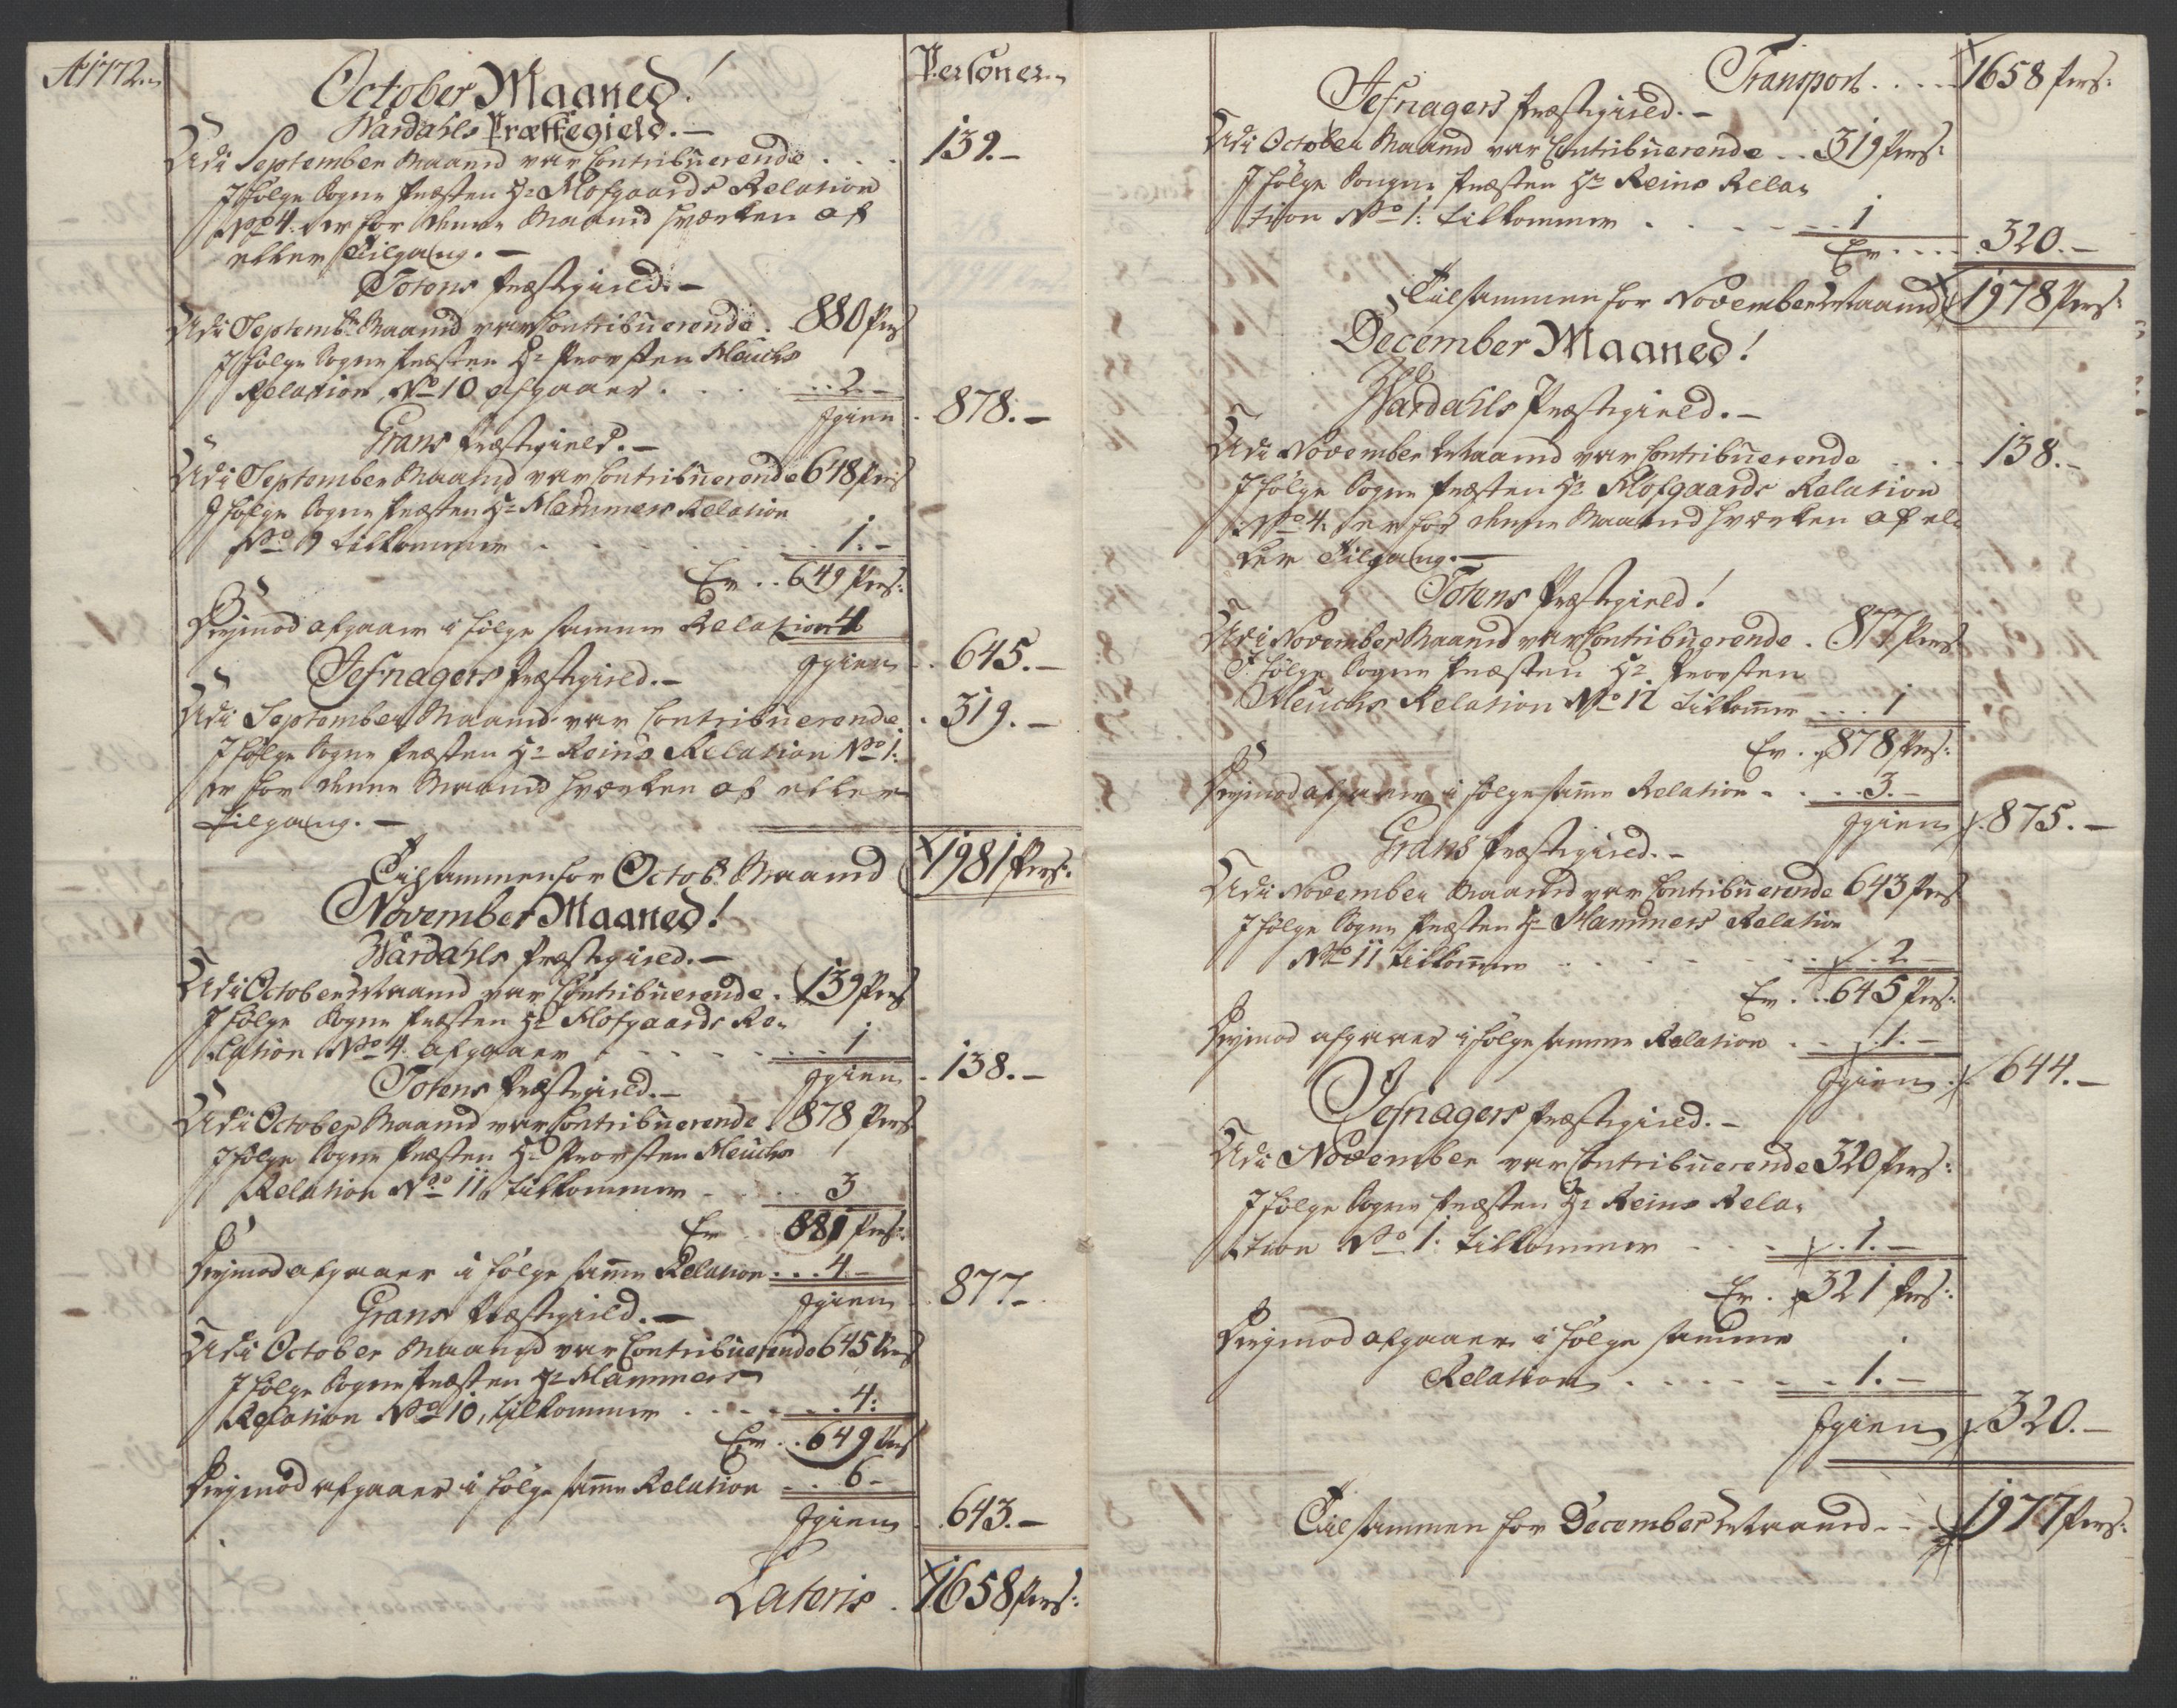 A 1772
Personer
October Maaned!
Wardahls Præstegield.
Udi September Maaned var Contribuerende . . . 139.
Ifølge Sogne Præsten Hr Klofgaards Relation
No 4. er for denne Maaned hverken af
eller Tilgang.
Totens Præstegield.
Udi Septembr Maaned var Contribuerende . 880 Pers
Ifølge Sogne Præsten Hr Provsten Meuchs
Relation, No 10 afgaaer . . . 2.
Igien . 878.
Grans Præstegield.
Udi September Maaned var Contribuerende 648 Pers
Ifølge Sogne Præsten Hr Hammers Relation
No 9 tilkommer . . . 1.
Er . . 649 Pers:
Derimod afgaaer i følge samme Relation 4
Igien . . 645.
Jefnagers Præstegield.
Udi September Maaned var Contribuerende . 319.
Ifølge Sogne Præsten Hr Reins Relation No 1:
er for denne Maaned hverken af eller
tilgang.
Tilsammen for Octobr Maaned 1981 Pers:
November Maaned!
Wardahls Præstegield.
Udi October Maaned var Contribuerende . 139 Pers
Ifølge Sogne Præsten Hr Klofgaards Re-
lation No 4. afgaaer . . . 1
Igien . 138.
Totens Præstegield.
Udi October Maaned var Contribuerende . 878 Pers
Ifølge Sogne Præsten Hr Provsten Meuchs
Relation No 11, tilkommer . . . 3
Er . . 881 Pers:
Derimod afgaaer i følge samme Relation . . . 4
Igien . 877.
Grans Præstegield.
Udi October Maaned var Contribuerende 645 Pers
Ifølge Sogne Præsten Hr Hammers
Relation No 10, tilkommer . . . 4:
Er . . 649 Pers
Derimod afgaaer i følge samme Relation . . 6
Igien . 643.
Lateris . 1658 Pers:
Transport . . . . 1658 Pers:
Jefnagers Præstegield.
Udi October Maaned var Contribuerende . . 319 Pers:
Ifølge Sogne Præsten Hr Reins Rela-
tion No 1: tilkommer . . . 1
Er . . . . 320.
Tilsammen for November Maaned 1978 Pers:
December Maaned!
Wardahls Præstegield.
Udi November Maaned var Contribuerende . . . 138.
Ifølge Sogne Præsten Hr Klofgaards Relation
No 4: er for denne Maaned hverken af el-
ler Tilgang.
Totens Præstegield!
Udi November Maaned var Contribuerende . 877 Pers
I følge Sogne Præsten Hr Provsten
Meuchs Relation No 12 tilkommer . . . 1
Er . 878 Pers:
Derimod afgaaer i følge samme Relation . . . 3.
Igien 875.
Grans Præstegield.
Udi November Maaned var Contribuerende 643 Pers
Ifølge Sogne Præsten Hr Hammers Relation
No 11 tilkommer . . . 2
Er . . 645 Pers:
Derimod afgaaer ifølge samme Relation . . 1.
Igien . 644.
Jefnagers Præstegield.
Udi November var Contribuerende 320 Pers:
Ifølge Sogne Præsten Hr Reins Rela-
tion No 1: tilkommer . . . 1.
Er . 321 Pers:
Derimod afgaaer i følge samme
Relation . . . 1.
Igien 320.
Tilsammen for December Maaned . . 1977 Pers: